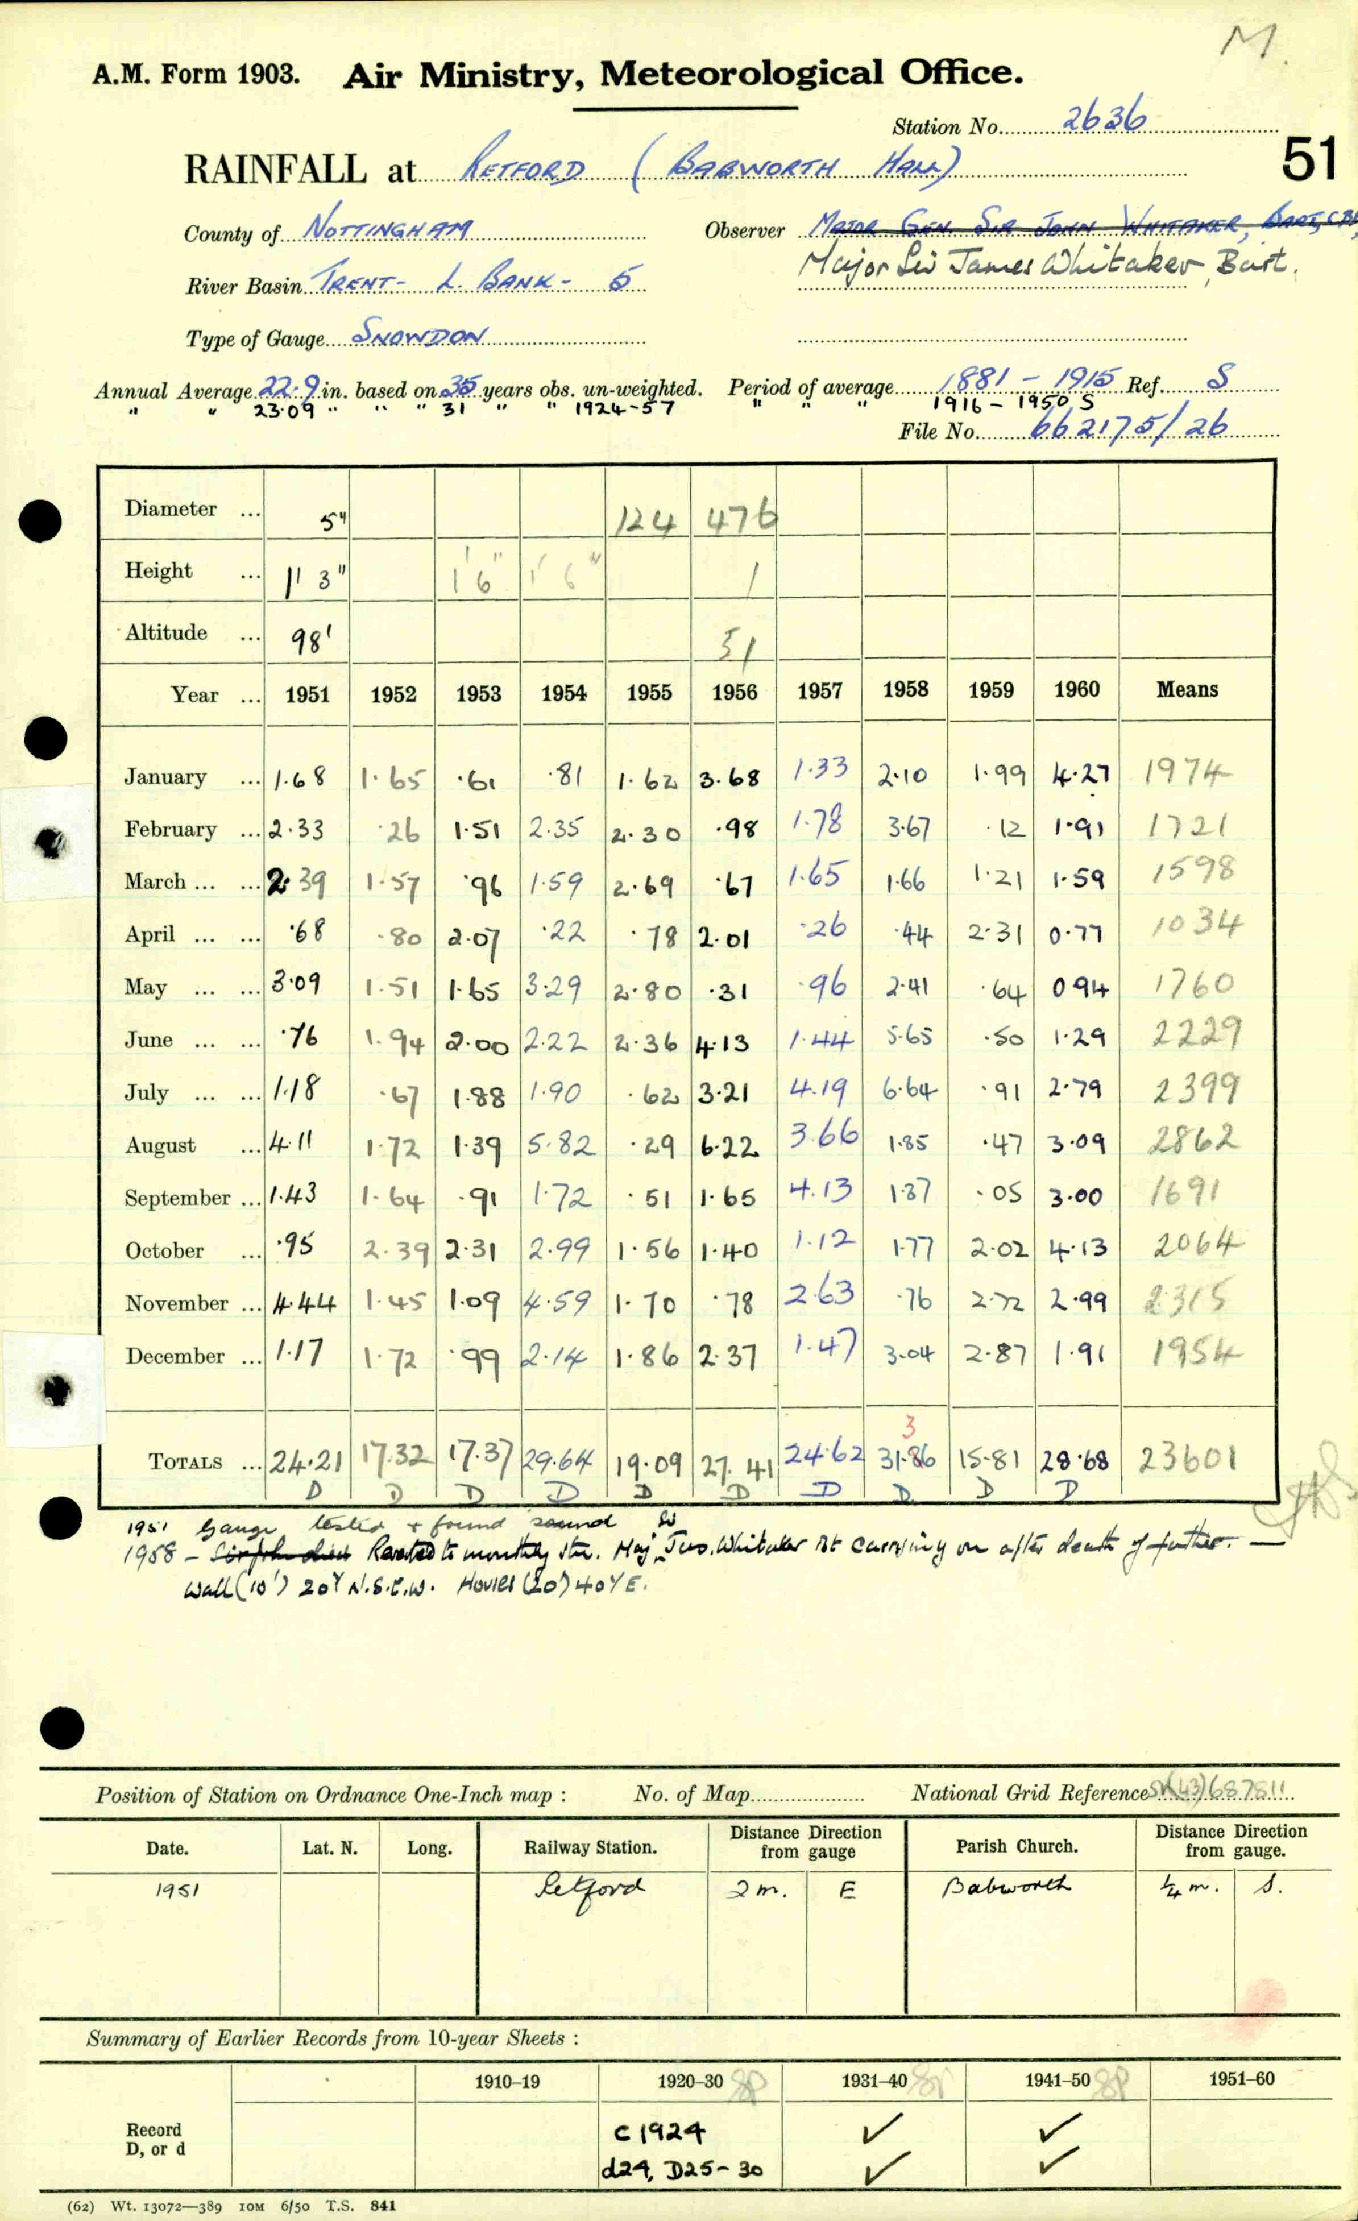 M
A.M. Form 1903. Air Ministry, Meteorological Office.
Station No. 2636
RAINFALL at RETFORD (BABWORTH HALL) 51
County of NOTTINGHAM Observer MAJOR GEN. SIR JOHN WHITAKER, BART, C.B.
River Basin TRENT - L. BANK - 5 Major Sir James Whitaker, Bart.
Type of Gauge SNOWDON
Annual Average 22.9 in. based on 35 years obs. un-weighted. Period of average 1881 - 1915 Ref. S
" " 23.09 " " " 31 " " 1924-57 " " " 1916 - 1950 S
File No. 662175/26
Diameter ... 5" 124 476
Height ... 1' 3" 1' 6" 1' 6" 1
Altitude ... 98' 51
Year ... 1951 1952 1953 1954 1955 1956 1957 1958 1959 1960 Means
January ... 1.68 1.65 .61 .81 1.62 3.68 1.33 2.10 1.99 4.27 1974
February ... 2.33 .26 1.51 2.35 2.30 .98 1.78 3.67 .12 1.91 1721
March ... ... 2.39 1.57 .96 1.59 2.69 .67 1.65 1.66 1.21 1.59 1598
April ... ... .68 .80 2.07 .22 .78 2.01 .26 .44 2.31 0.77 1034
May ... ... 3.09 1.51 1.65 3.29 2.80 .31 .96 2.41 .64 0 94 1760
June ... ... .76 1.94 2.00 2.22 2.36 4.13 1.44 5.65 .50 1.29 2229
July ... ... 1.18 .67 1.88 1.90 .62 3.21 4.19 6.64 .91 2.79 2399
August ... 4.11 1.72 1.39 5.82 .29 6.22 3.66 1.85 .47 3.09 2862
September ... 1.43 1.64 .91 1.72 .51 1.65 4.13 1.87 .05 3.00 1691
October ... .95 2.39 2.31 2.99 1.56 1.40 1.12 1.77 2.02 4.13 2064
November ... 4.44 1.45 1.09 4.59 1.70 .78 2.63 .76 2.72 2.99 2315
December ... 1.17 1.72 .99 2.14 1.86 2.37 1.47 3.04 2.87 1.91 1954
3
TOTALS ... 24.21 17.32 17.37 29.64 19.09 27.41 24.62 31.86 15.81 28.68 23601
D D D D D D D D D D
1951 Gauge tested + found sound
1958 - Sir John died Reverted to monthly stn. Maj Sir Jas. Whitaker Bt carrying on after death of father. —
Wall (10') 20Y N.S.E.W. Houses (20') 40Y E.
Position of Station on Ordnance One-Inch map : No. of Map National Grid Reference SK(43)687811
Date. Lat. N. Long. Railway Station. Distance from gauge Direction Parish Church. Distance from gauge. Direction
1951 Retford 2 m. E Babworth ¼ m. S.
Summary of Earlier Records from 10-year Sheets :
1910–19 1920–30 1931–40 1941–50 1951–60
Record C 1924 ✓ ✓
D, or d d24, D25-30 ✓ ✓
(62) Wt. 13072—389 10M 6/50 T.S. 841